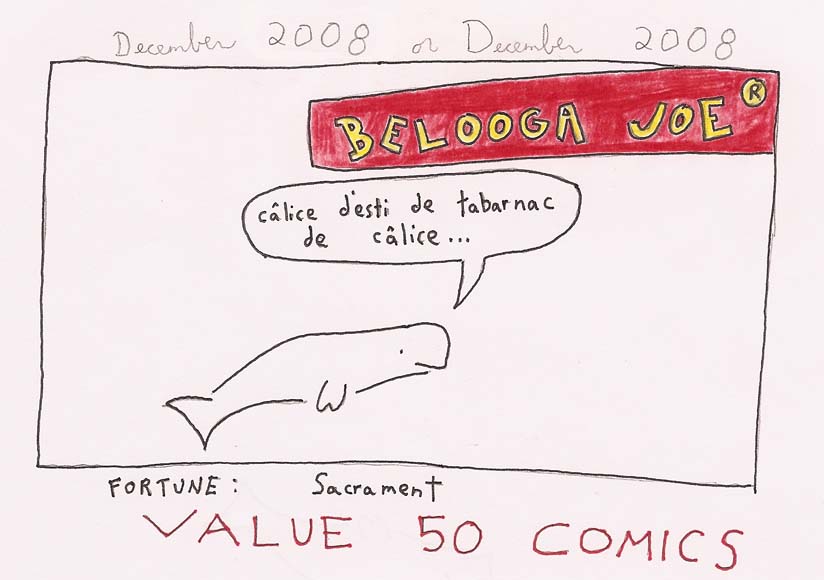 December 2008 or December 2008
BELOOGA JOE ®
câlice d'esti de tabarnac
de câlice...
FORTUNE: Sacrament
VALUE 50 COMICS